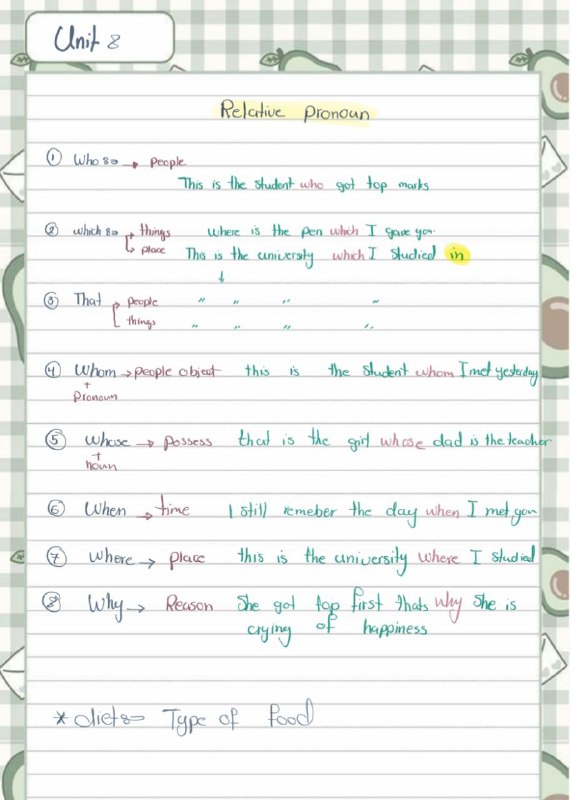 Unit 8
Relative pronoun
① Who 8⇒ → people
This is the student who got top marks
② which 8⇒ → things where is the pen which I gave you.
→ place This is the university which I studied in
↓
③ That → people " " " "
things " " " "
④ Whom → people object this is the student whom I met yesterday
+
pronoun
⑤ whose → possess that is the girl whose dad is the teacher
+
noun
⑥ When → time I still remeber the day when I met you
⑦ where → place this is the university where I studied
⑧ Why → Reason She got top first thats why she is
crying of happiness
* diet 8= Type of food